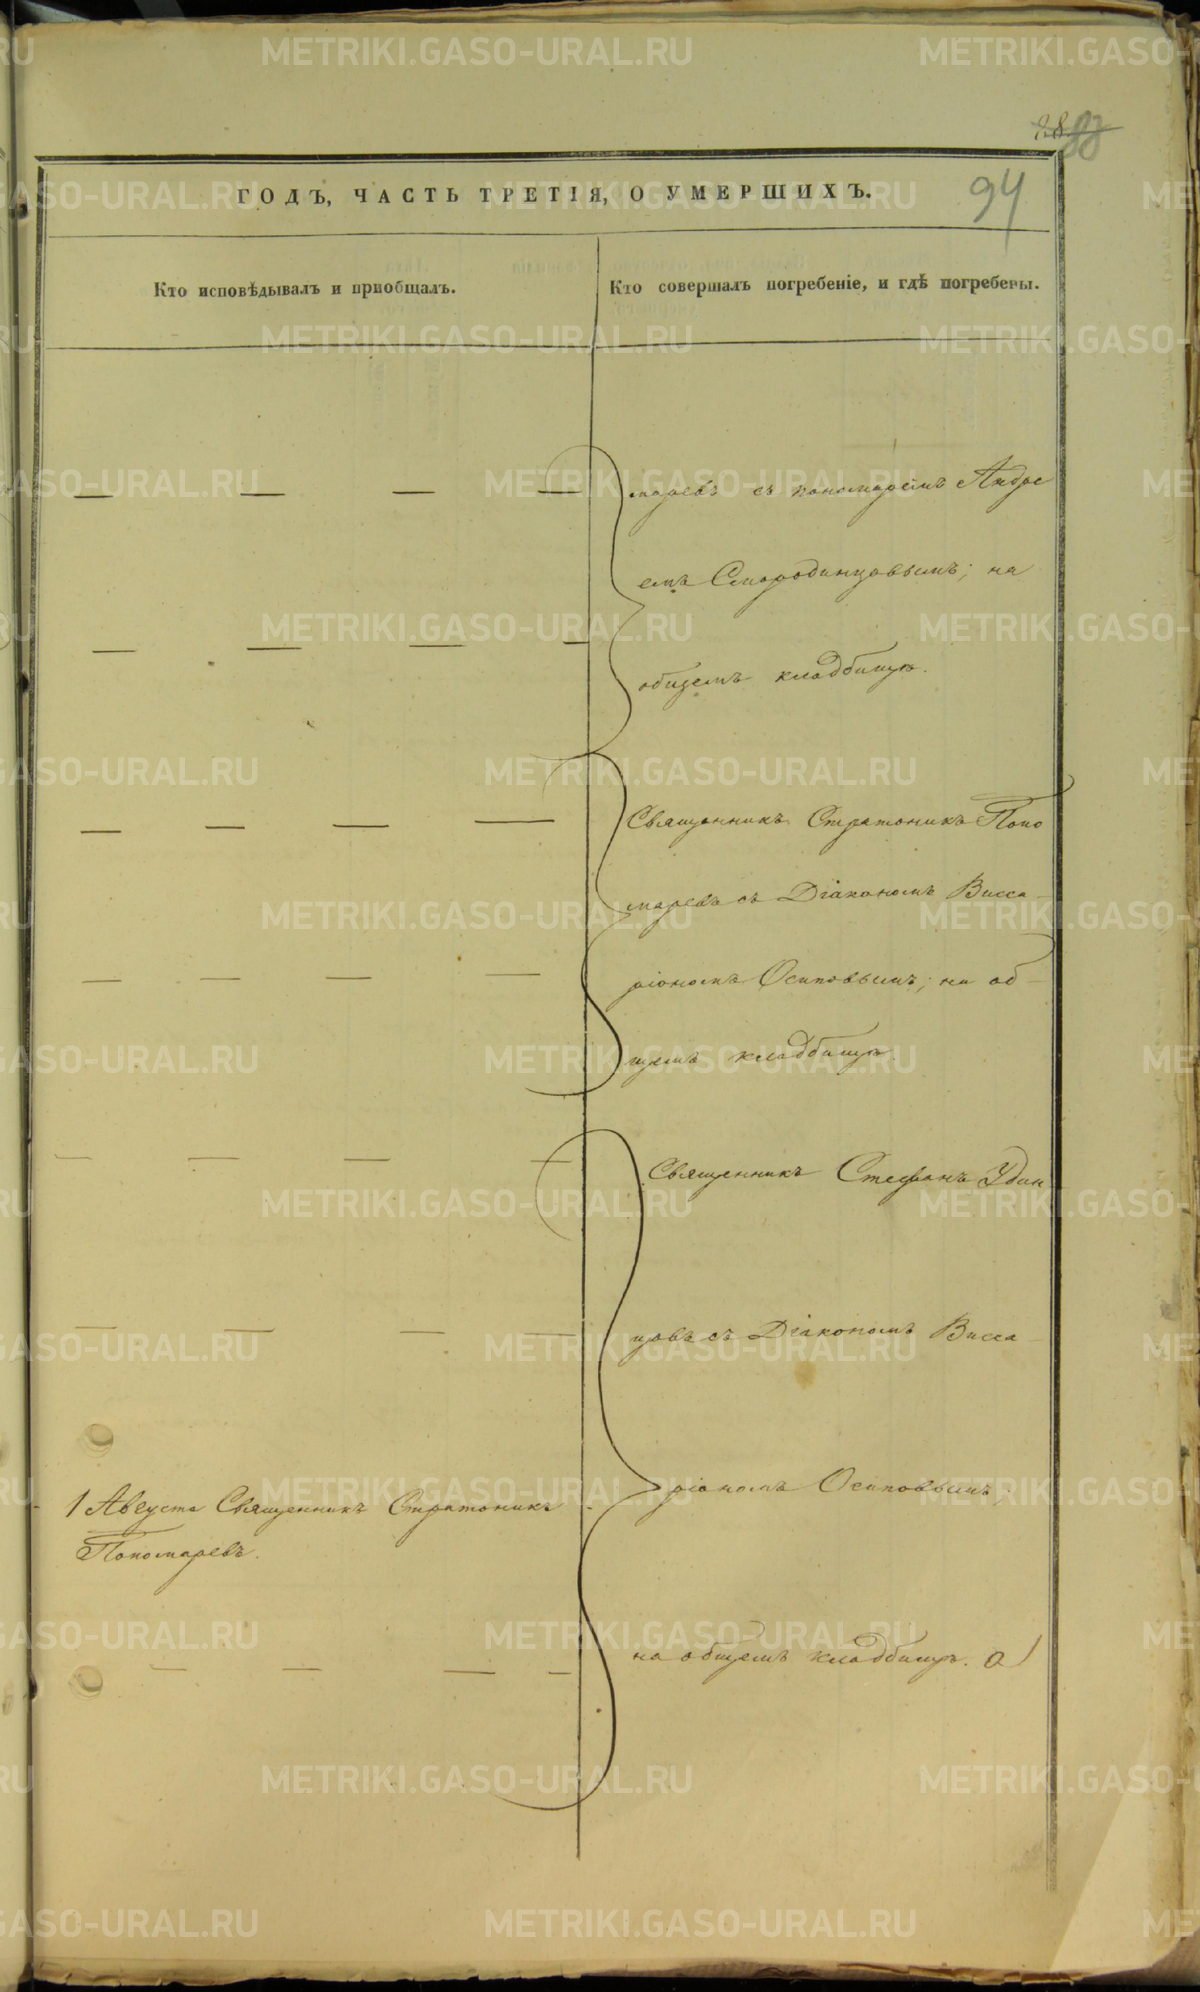 94
ГОДЪ, ЧАСТЬ ТРЕТІЯ, О УМЕРШИХЪ.
Кто исповѣдывалъ и пріобщалъ.
Кто совершалъ погребеніе, и гдѣ погребены.
маревъ съ пономаремъ Андре
емъ Смородинцовымъ; на
общемъ кладбищѣ.
Священникъ Стратоникъ Поно
маревъ съ Діакономъ Висса-
ріономъ Осиповымъ; на об-
щемъ кладбищѣ.
Священникъ Стефанъ Удин
цовъ съ Діакономъ Висса-
ріономъ Осиповымъ;
1 Августа Священникъ Стратоникъ
Пономаревъ.
на общемъ кладбищѣ.
METRIKI.GASO-URAL.RU